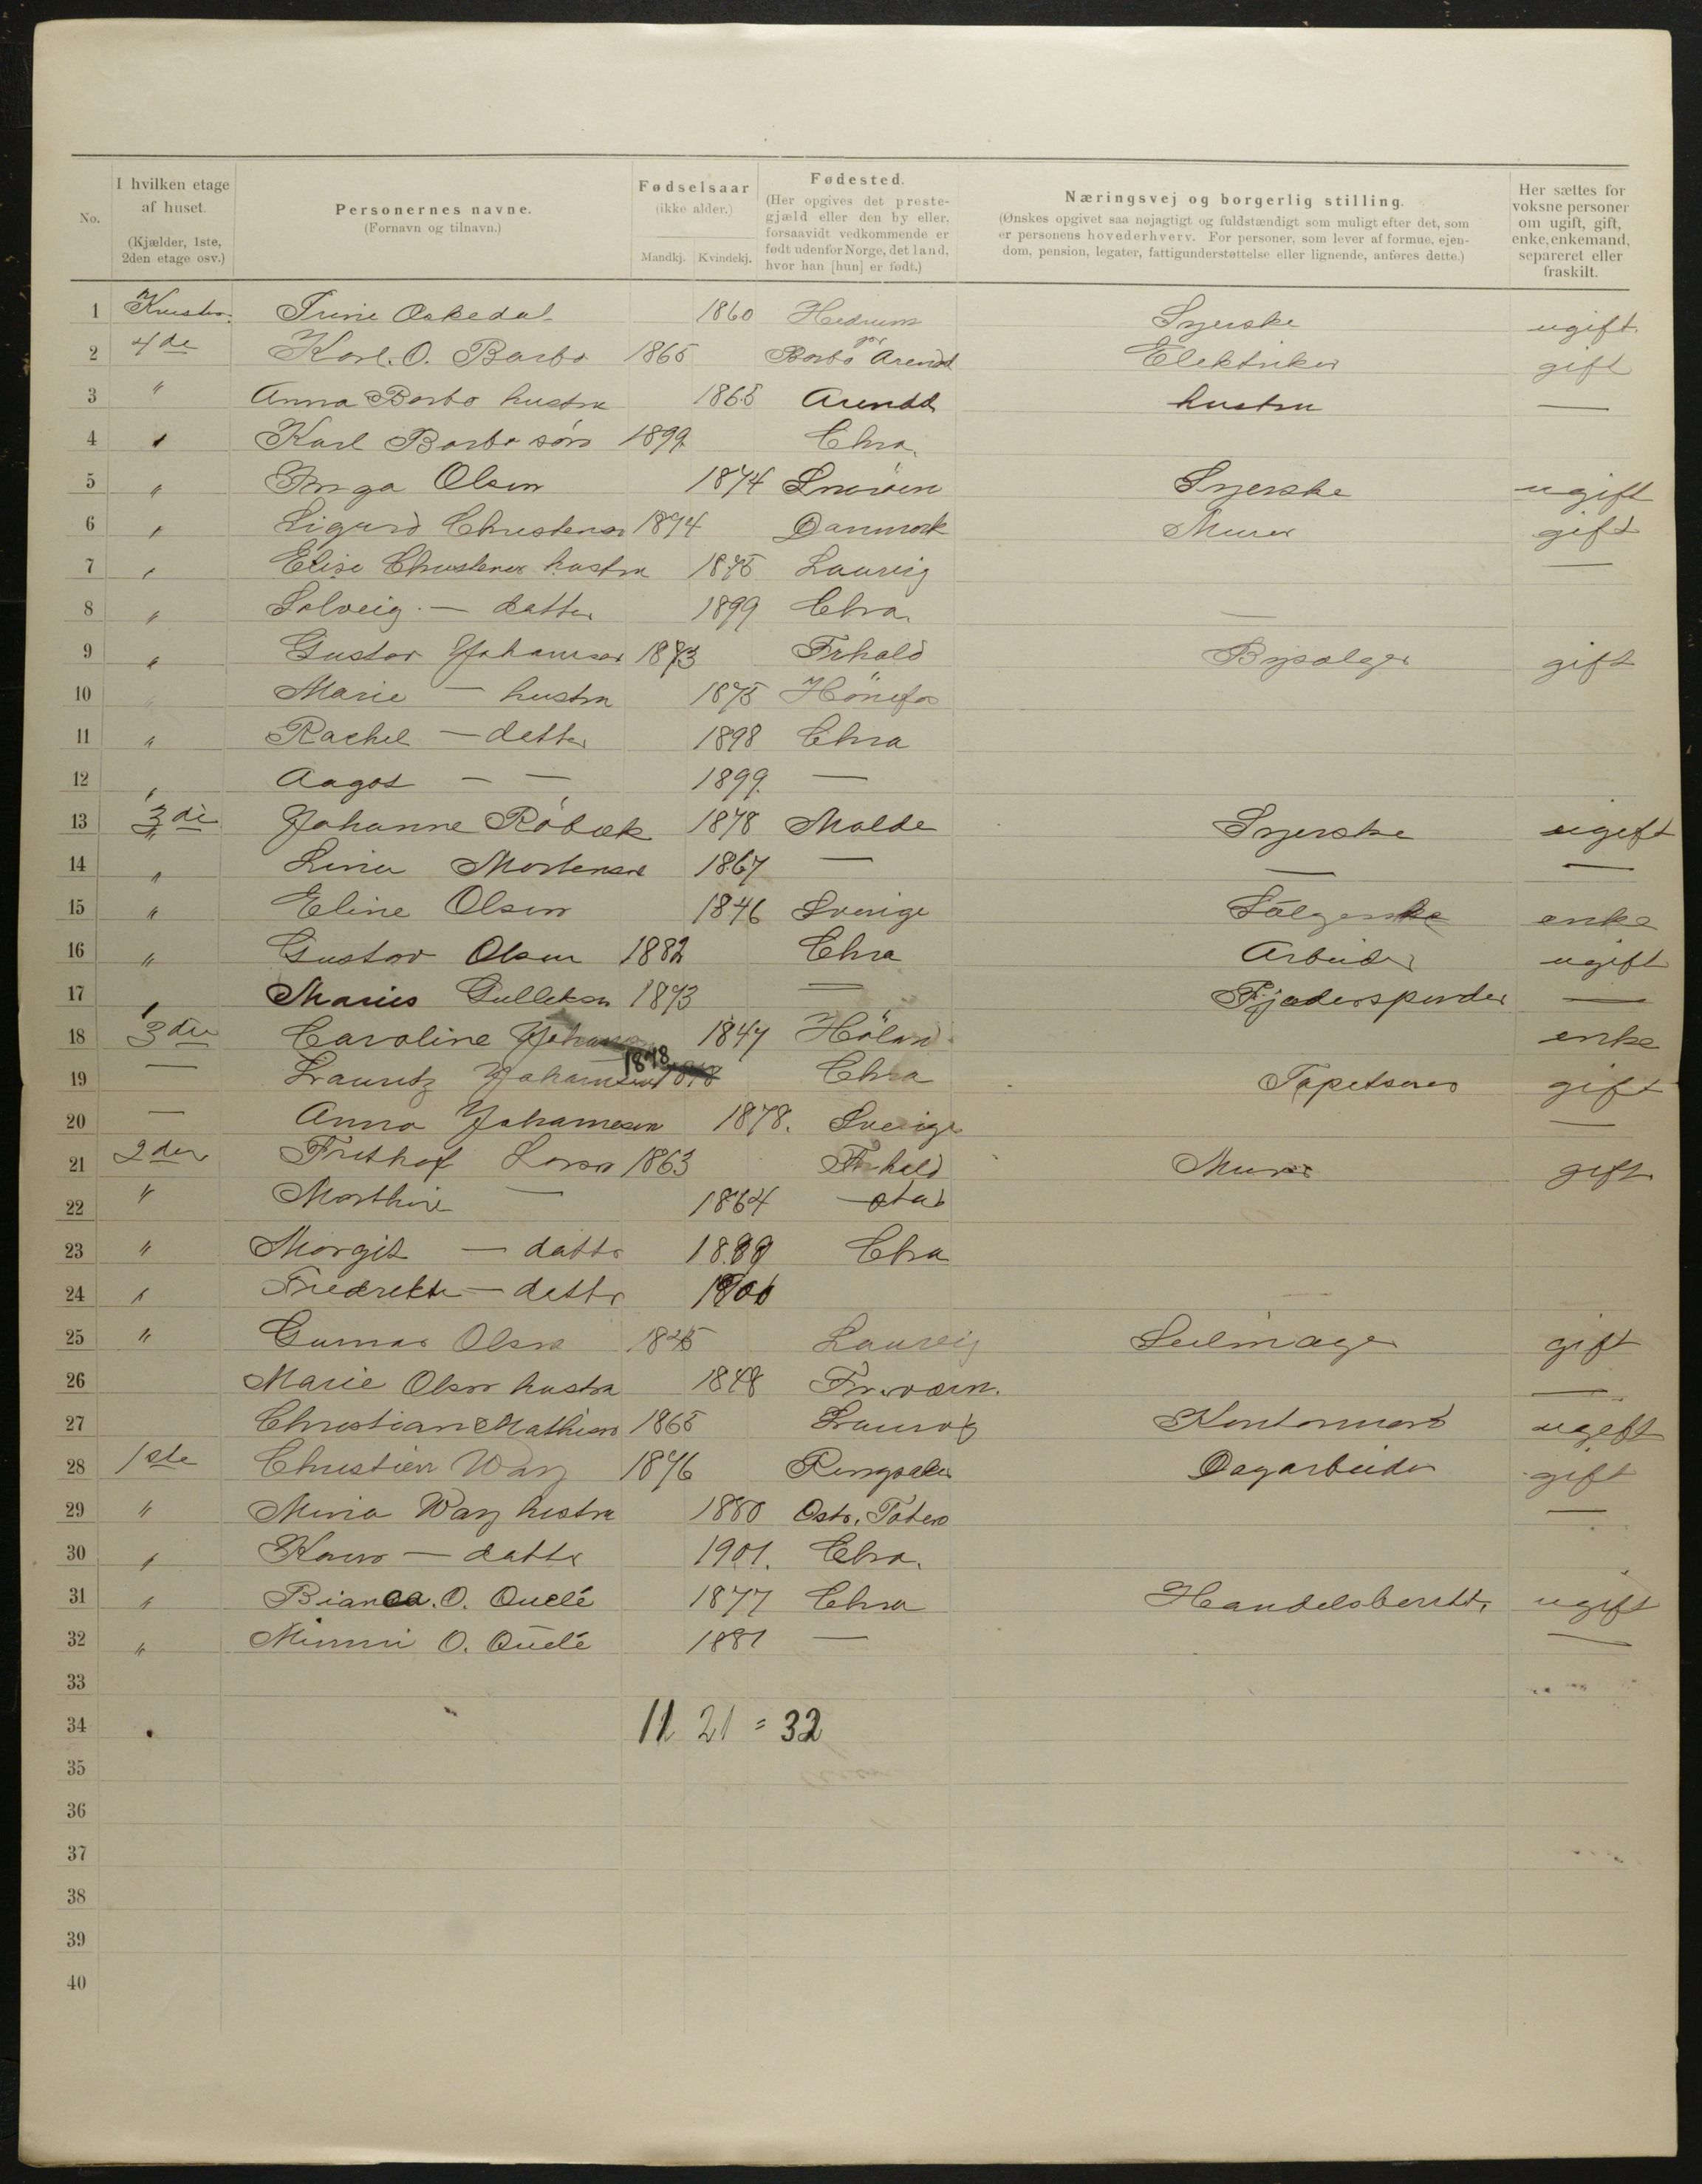 No.
I hvilken etage
af huset.
(Kjælder, 1ste,
2den etage osv.)
Personernes navne.
(Fornavn og tilnavn.)
Fødselsaar
(ikke alder.)
Mandkj. Kvindekj.
Fødested.
(Her opgives det preste-
gjæld eller den by eller,
forsaavidt vedkommende er
født udenfor Norge, det land,
hvor han [hun] er født.)
Næringsvej og borgerlig stilling.
(Ønskes opgivet saa nøjagtigt og fuldstændigt som muligt efter det, som
er personens hovederhverv. For personer, som lever af formue, ejen-
dom, pension, legater, fattigunderstøttelse eller lignende, anføres dette.)
Her sættes for
voksne personer
om ugift, gift,
enke, enkemand,
separeret eller
fraskilt.
1 Trine 1860 Hedrum Syerske ugift
2 4de Karl. O. Barbo 1865 Barbo Arendal Elektriker gift
3 " Anna Barbo hustru 1865 Arendal hustru —
4 " Karl Barbo søn 1899 Chra.
5 " Inga Olsen 1874 Syerske ugift
6 " Sigurd Christensen 1874 Danmark Murer gift
7 " Elise Christensen hustru 1875 Laurvig —
8 " Solveig — datter 1899 Chra. —
9 " Gustav Johansen 1873 Frhald gift
10 " Marie — hustru 1875 Hönefos
11 " Rachel — datter 1898 Chra
12 " Aagot — — 1899 —
13 3die Johanne Röbæk 1878 Molde Syerske ugift
14 " Lina Mortensen 1867 — — —
15 " Eline Olsen 1846 Sverige Sælgerske enke
16 " Gustav Olsen 1882 Chra Arbeider ugift
17 " Marius Gulleksen 1873 — —
18 3die Caroline Johansen 1847 Höland enke
19 — Lauritz Johansen 1878 1878 Chra Tapetserer gift
20 — Anna Johannesen 1878. Sverige —
21 2den Frithof Larsen 1863 Frhald Murer gift
22 " — 1864 —
23 " Margit — datter 1889 Chra
24 " Fredrikke — datter 1900 —
25 " Gunnar Olsen 1845 Laurvig Seilmager gift
26 Marie Olsen hustru 1848 Fr.værn. —
27 Christian Mathisen 1865 Laurvig Kontormand ugift
28 1ste Christian Wang 1876 Ringsaker Dagarbeider gift
29 " Mina Wang hustru 1880 Østr. Toten —
30 " Karen — datter 1901. Chra.
31 " Bianca. O. Quelé 1877 Chra Handelsberett. ugift
32 " Mimmi O. Quelé 1881 — —
33
34 11 21 = 32
35
36
37
38
39
40